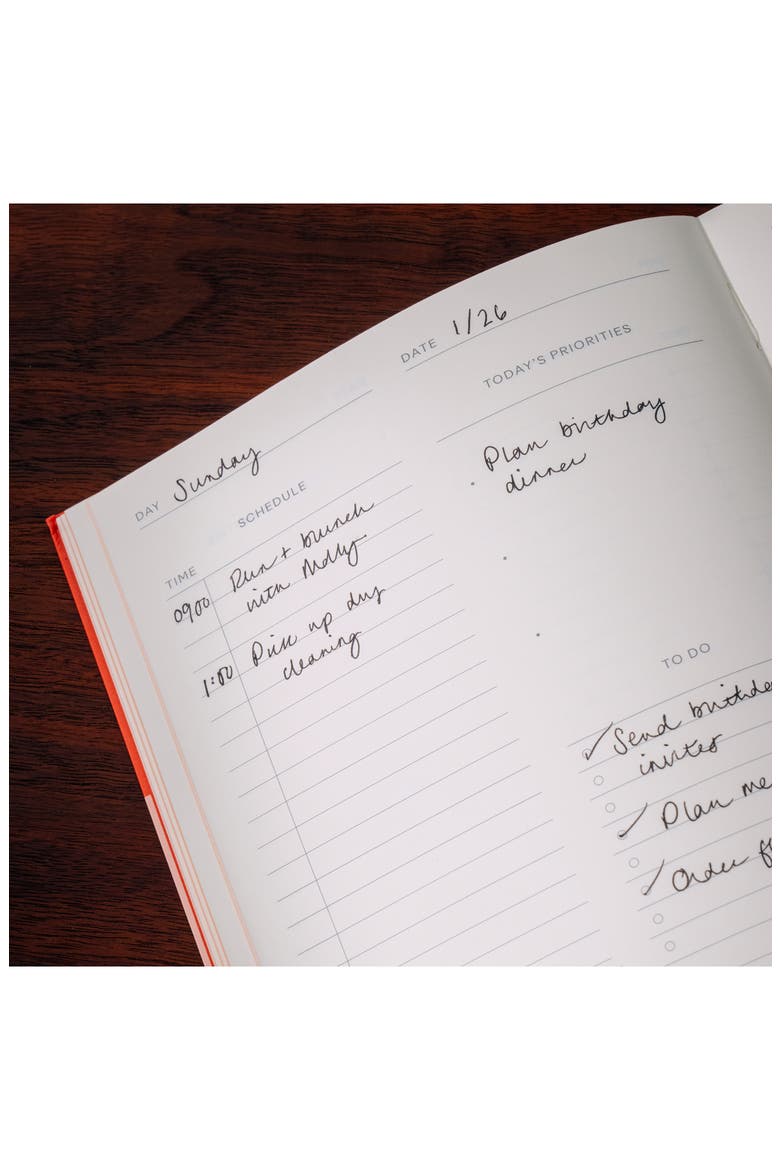 DAY Sunday
DATE 1/26
SCHEDULE
TIME
0900 Run + brunch
with Molly
1:00 Pick up dry
cleaning
TODAY'S PRIORITIES
Plan birthday
dinner
TO DO
Send
invites
Plan
Order